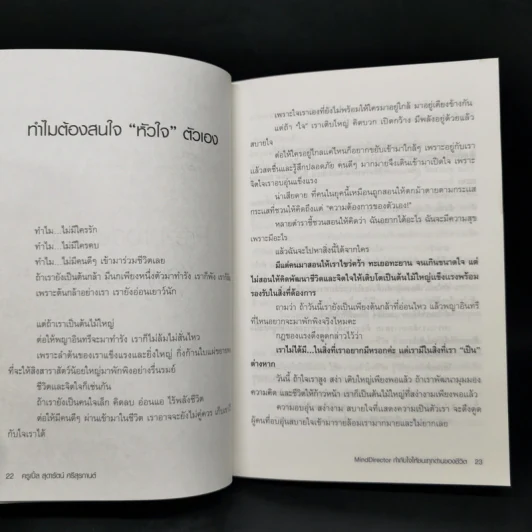 ทำไมต้องสนใจ “หัวใจ” ตัวเอง
ทำไม...ไม่มีใครรัก
ทำไม...ไม่มีใครคบ
ทำไม...ไม่มีคนดีๆ เข้ามาร่วมชีวิตเลย
ถ้าเรายังเป็นต้นกล้า มีนกเพียงหนึ่งตัวมาทำรัง เราก็พัง
เพราะต้นกล้าอย่างเรา เรายังอ่อนเยาว์นัก
แต่ถ้าเราเป็นต้นไม้ใหญ่
ต่อให้พญาอินทรีจะมาทำรัง เราก็ไม่ล้มไม่สั่นไหว
เพราะลำต้นของเราแข็งแรงและยิ่งใหญ่ กิ่งก้านใบแผ่ขยาย
ที่จะให้สิงสาราสัตว์น้อยใหญ่มาพักพิงอย่างรื่นรมย์
ชีวิตและจิตใจก็เช่นกัน
ถ้าเรายังเป็นคนใจเล็ก คิดลบ อ่อนแอ ไร้พลังชีวิต
ต่อให้มีคนดีๆ ผ่านเข้ามาในชีวิต เราอาจจะยังไม่คู่ควร
กับใจเราได้
22 ครูเบิ้ล สุดารัตน์ ศรีสุรกานต์
เพราะใจเราเองที่ยังไม่พร้อมให้ใครมาอยู่ใกล้ มาอยู่เคียงข้างกัน
แต่ถ้า “ใจ” เราเติบใหญ่ คิดบวก เปิดกว้าง มีพลังอยู่ด้วยแล้ว
สบายใจ
ต่อให้ใครอยู่ไกลแค่ไหนก็อยากขยับเข้ามาใกล้ๆ เพราะอยู่กับเรา
แล้วสดชื่นและรู้สึกปลอดภัย คนดีๆ มากมายจึงเดินเข้ามาเปิดใจ เพราะ
จิตใจเราอบอุ่นแข็งแรง
น่าเสียดาย ที่คนในยุคนี้เหมือนถูกสอนให้ตกม้าตายตามกระแส
กระแสที่ชวนให้คิดถึงแต่ “ความต้องการของตัวเอง!”
หลายตำราชี้ชวนสอนให้คิดว่า ฉันอยากได้อะไร ฉันจะมีความสุข
เพราะมีอะไร
แล้วฉันจะไปหาสิ่งนี้ได้จากใคร
มีแต่คนมาสอนให้เราไขว่คว้า ทะเยอทะยาน จนเกินขนาดใจ แต่
ไม่สอนให้คิดพัฒนาชีวิตและจิตใจให้เติบโตเป็นต้นไม้ใหญ่แข็งแรงพร้อม
รองรับในสิ่งที่ต้องการ
ถามว่า ถ้าวันนี้เรายังเป็นเพียงต้นกล้าที่อ่อนไหว แล้วพญาอินทรี
ที่ไหนอยากจะมาพักพิงจริงไหมคะ
กฎของแรงดึงดูดกล่าวไว้ว่า
เราไม่ได้มี...ในสิ่งที่เราอยากมีหรอกค่ะ แต่เรามีในสิ่งที่เรา “เป็น”
ต่างหาก
วันนี้ ถ้าใจเราสูง สง่า เติบใหญ่เพียงพอแล้ว ถ้าเราพัฒนามุมมอง
ความคิด และชีวิตให้ก้าวหน้า เราก็เป็นต้นไม้ใหญ่ที่สง่างามเพียงพอแล้ว
ความอบอุ่น สง่างาม สบายใจที่แสดงความเป็นตัวเรา จะดึงดูด
ผู้คนที่อบอุ่นสบายใจเข้ามารายล้อมเรามากมายและไม่ยากเลย
MindDirector กำกับใจให้ชนะทุกด้านของชีวิต 23